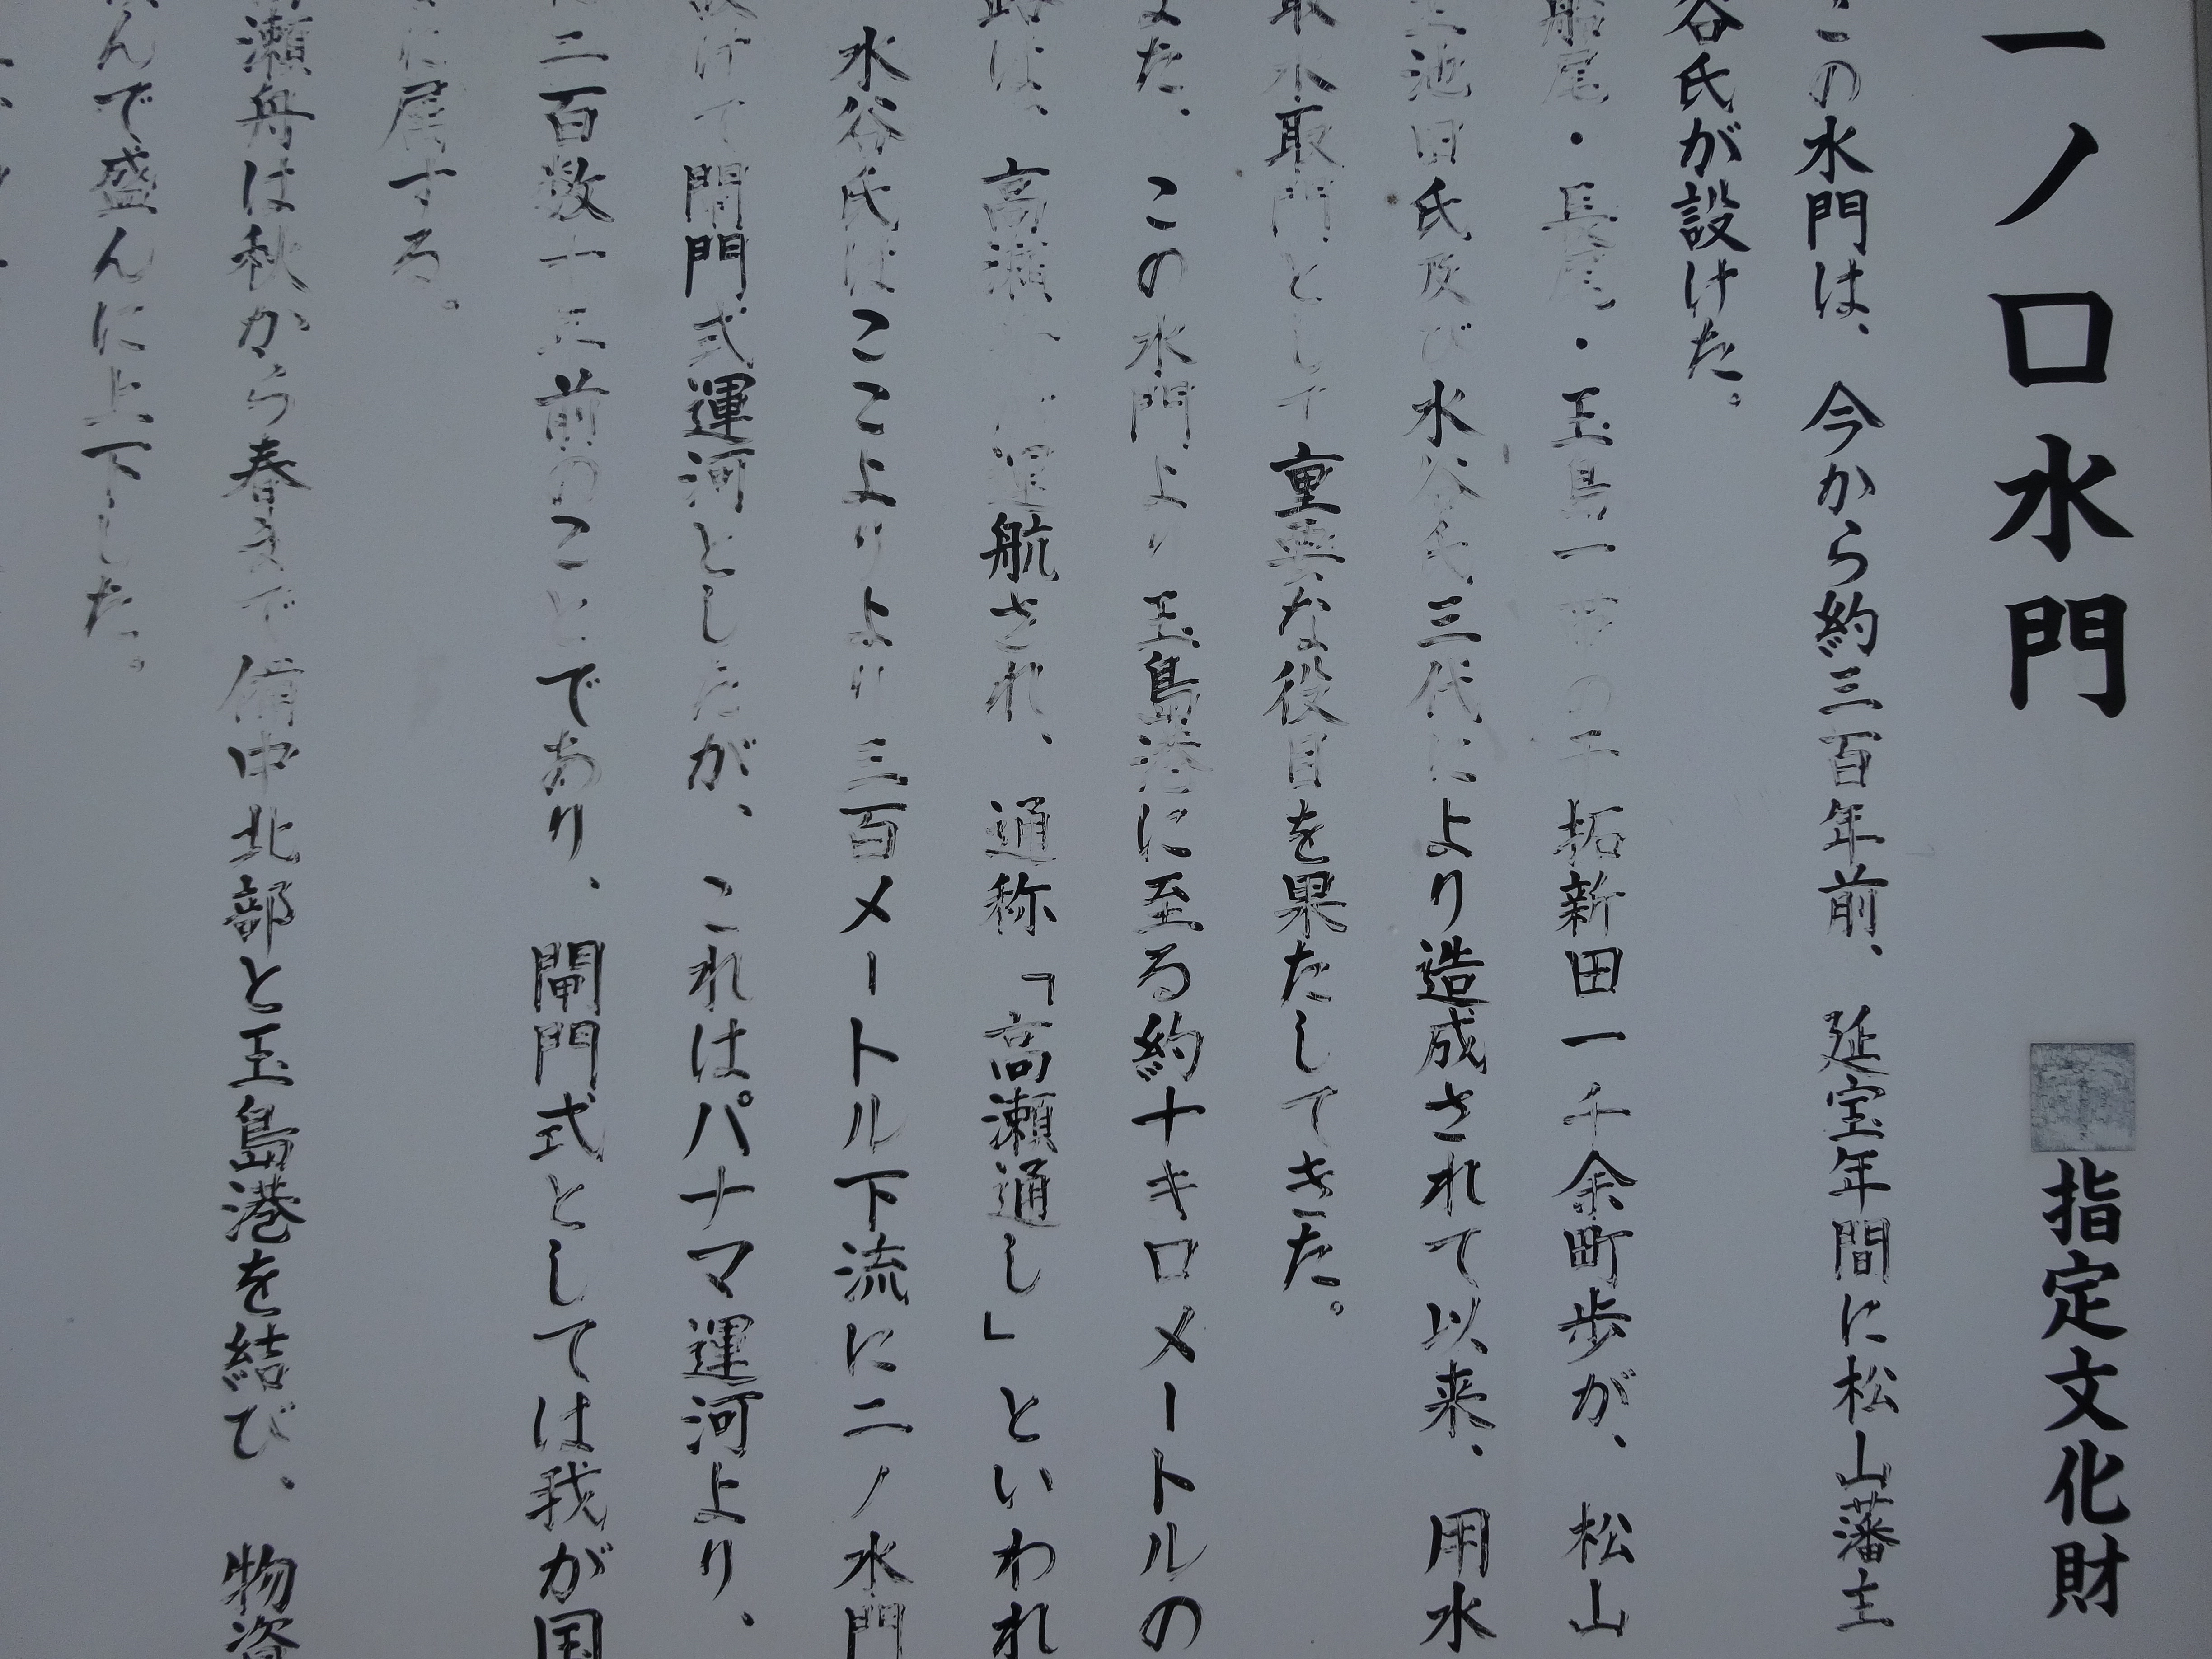 一ノ口水門
指定文化財
この水門は、今から約三百年前、延宝年間に松山藩主
谷氏が設けた。
船尾・長尾・玉島一帯の干拓新田一千余町歩が、松山
主池田氏及び水谷氏三代により造成されて以来、用水
取水取門として重要な役目を果たしてきた。
また、この水門より玉島港に至る約十キロメートルの
路は、高瀬 運航され、通称「高瀬通し」といわれ
水谷氏はここよりより三百メートル下流に二ノ水門
設けて閘門式運河としたが、これはパナマ運河より、
に二百数十年前のことであり、閘門式としては我が国
に属する。
瀬舟は秋から春まで備中北部と玉島港を結び、物資
んで盛んに上下した。